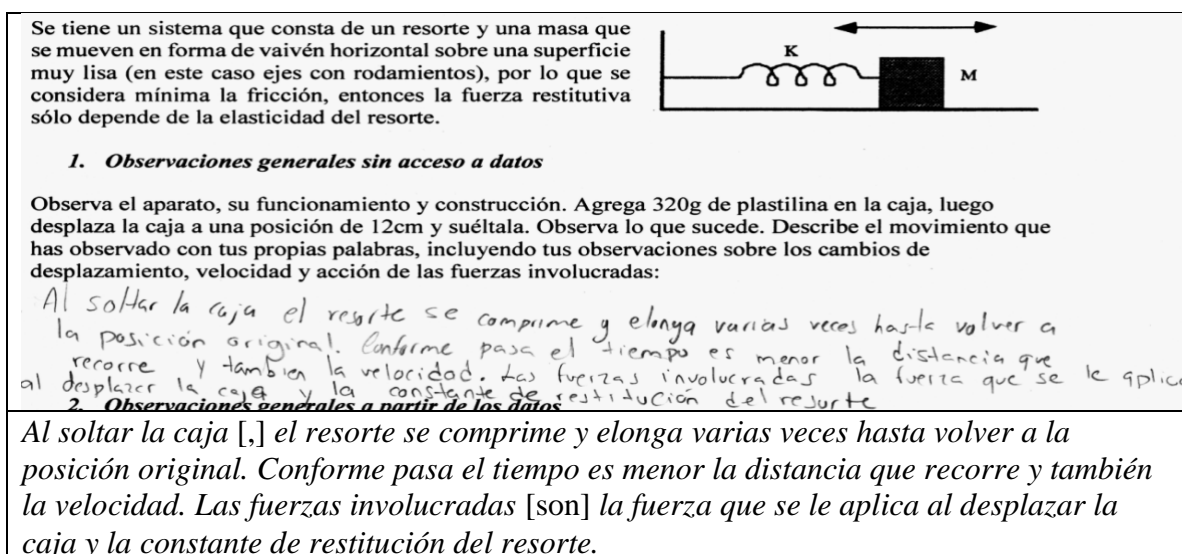 Se tiene un sistema que consta de un resorte y una masa que
se mueven en forma de vaivén horizontal sobre una superficie
muy lisa (en este caso ejes con rodamientos), por lo que se
considera mínima la fricción, entonces la fuerza restitutiva
sólo depende de la elasticidad del resorte.
K
M
1. Observaciones generales sin acceso a datos
Observa el aparato, su funcionamiento y construcción. Agrega 320g de plastilina en la caja, luego
desplaza la caja a una posición de 12cm y suéltala. Observa lo que sucede. Describe el movimiento que
has observado con tus propias palabras, incluyendo tus observaciones sobre los cambios de
desplazamiento, velocidad y acción de las fuerzas involucradas:
Al soltar la caja el resorte se comprime y elonga varias veces hasta volver a
la posición original. Conforme pasa el tiempo es menor la distancia que
recorre y tambien la velocidad. Las fuerzas involucradas la fuerza que se le aplica
al desplazar la caja y la constante de restitución del resorte
2. Observaciones generales a partir de los datos
Al soltar la caja [,] el resorte se comprime y elonga varias veces hasta volver a la
posición original. Conforme pasa el tiempo es menor la distancia que recorre y también
la velocidad. Las fuerzas involucradas [son] la fuerza que se le aplica al desplazar la
caja y la constante de restitución del resorte.